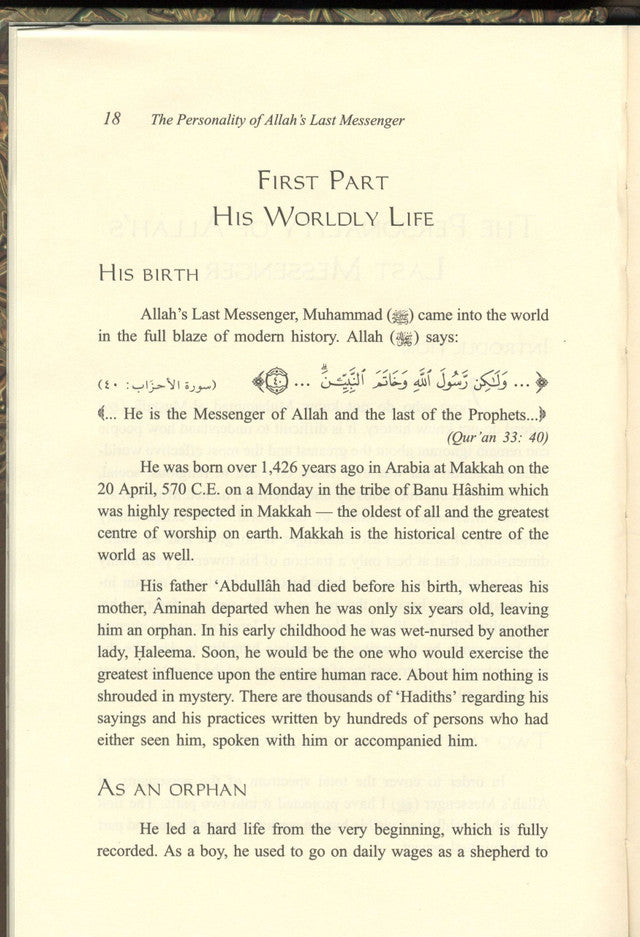 18 The Personality of Allah's Last Messenger
FIRST PART
HIS WORLDLY LIFE
HIS BIRTH
Allah's Last Messenger, Muhammad (ﷺ) came into the world
in the full blaze of modern history. Allah (ﷻ) says:
﴿... وَلَـٰكِن رَّسُولَ ٱللَّهِ وَخَاتَمَ ٱلنَّبِيِّـۧنَۗ ... ٤٠﴾ (سورة الأحزاب: ٤٠)
﴾... He is the Messenger of Allah and the last of the Prophets...﴿
(Qur'an 33: 40)
He was born over 1,426 years ago in Arabia at Makkah on the
20 April, 570 C.E. on a Monday in the tribe of Banu Hâshim which
was highly respected in Makkah — the oldest of all and the greatest
centre of worship on earth. Makkah is the historical centre of the
world as well.
His father ‘Abdullâh had died before his birth, whereas his
mother, Âminah departed when he was only six years old, leaving
him an orphan. In his early childhood he was wet-nursed by another
lady, Ḥaleema. Soon, he would be the one who would exercise the
greatest influence upon the entire human race. About him nothing is
shrouded in mystery. There are thousands of ‘Hadiths’ regarding his
sayings and his practices written by hundreds of persons who had
either seen him, spoken with him or accompanied him.
AS AN ORPHAN
He led a hard life from the very beginning, which is fully
recorded. As a boy, he used to go on daily wages as a shepherd to